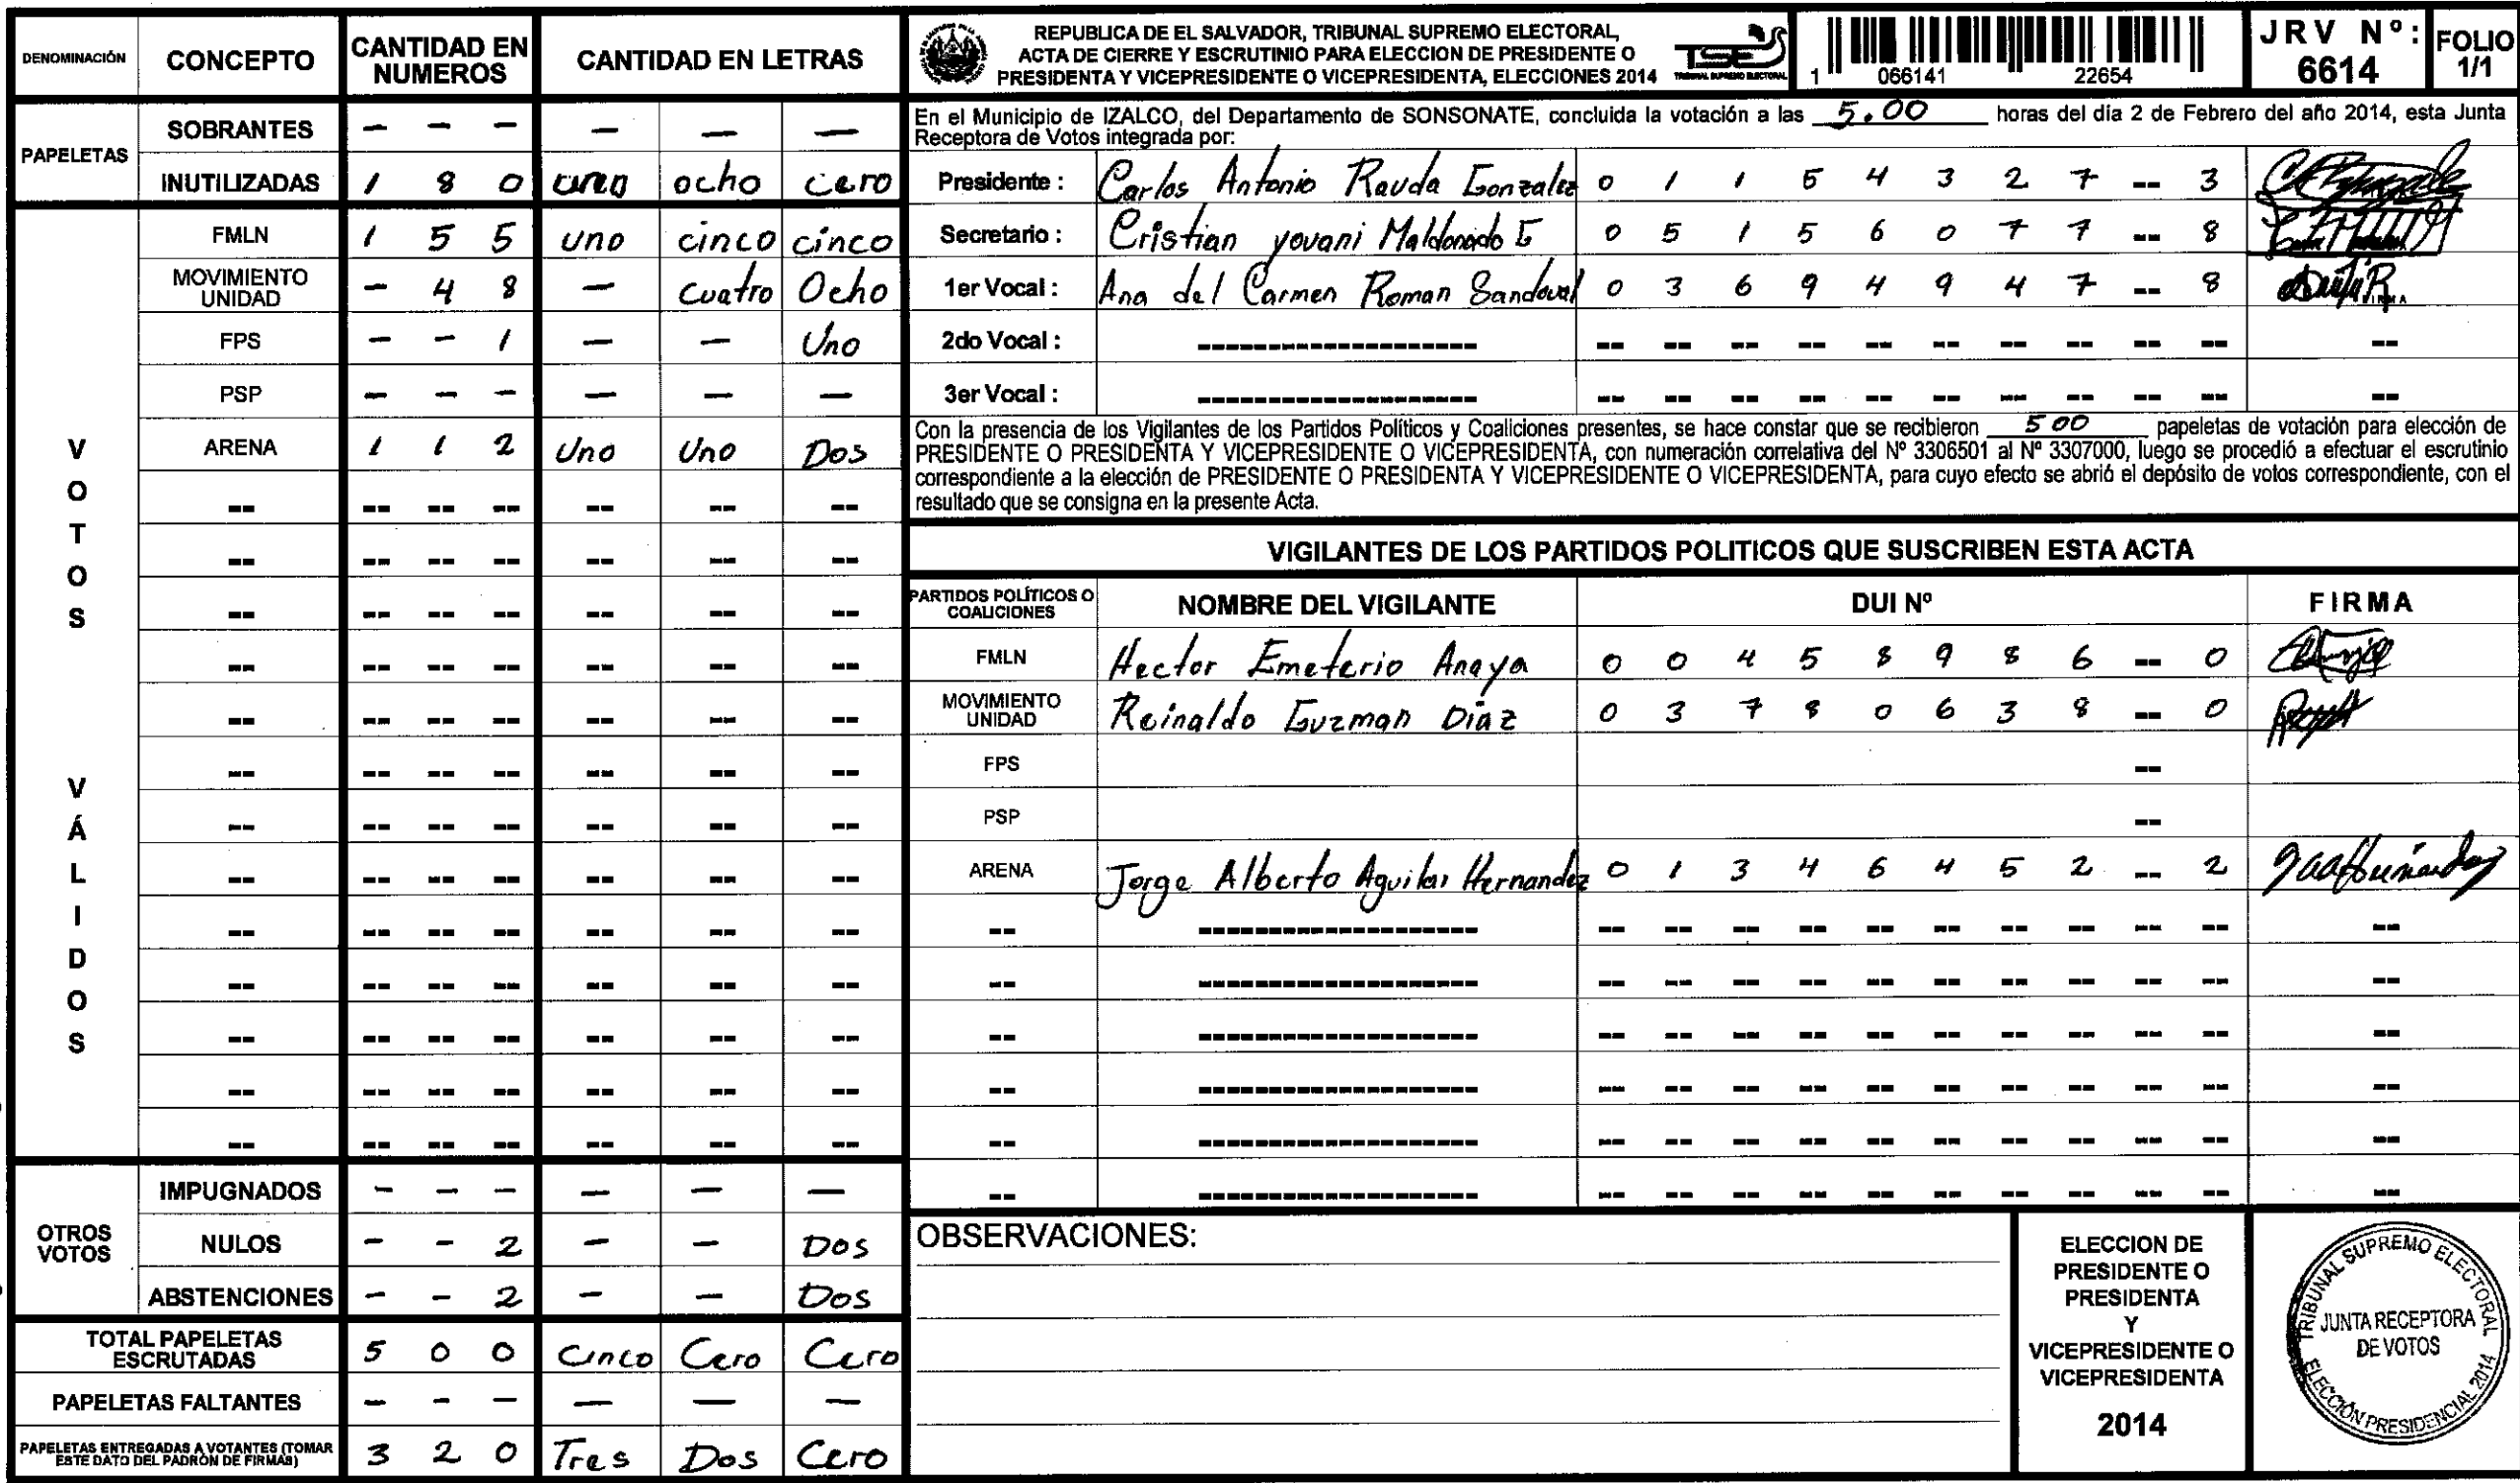 DENOMINACIÓN CONCEPTO CANTIDAD EN NUMEROS CANTIDAD EN LETRAS
PAPELETAS
SOBRANTES - - - - - -
INUTILIZADAS 1 8 0 uno ocho cero
VOTOS VÁLIDOS
FMLN 1 5 5 uno cinco cinco
MOVIMIENTO UNIDAD - 4 8 - cuatro Ocho
FPS - - 1 - - Uno
PSP - - - - - -
ARENA 1 1 2 Uno Uno Dos
-- -- -- -- -- -- --
-- -- -- -- -- -- --
-- -- -- -- -- -- --
-- -- -- -- -- -- --
-- -- -- -- -- -- --
-- -- -- -- -- -- --
-- -- -- -- -- -- --
-- -- -- -- -- -- --
-- -- -- -- -- -- --
-- -- -- -- -- -- --
-- -- -- -- -- -- --
-- -- -- -- -- -- --
-- -- -- -- -- -- --
OTROS VOTOS
IMPUGNADOS - - - - - -
NULOS - - 2 - - Dos
ABSTENCIONES - - 2 - - Dos
TOTAL PAPELETAS ESCRUTADAS 5 0 0 Cinco Cero Cero
PAPELETAS FALTANTES - - - - - -
PAPELETAS ENTREGADAS A VOTANTES (TOMAR
ESTE DATO DEL PADRÓN DE FIRMAS) 3 2 0 Tres Dos Cero
REPUBLICA DE EL SALVADOR, TRIBUNAL SUPREMO ELECTORAL,
ACTA DE CIERRE Y ESCRUTINIO PARA ELECCION DE PRESIDENTE O
PRESIDENTA Y VICEPRESIDENTE O VICEPRESIDENTA, ELECCIONES 2014
TSE
TRIBUNAL SUPREMO ELECTORAL
1 066141 22654
JRV Nº: 6614
FOLIO 1/1
En el Municipio de IZALCO, del Departamento de SONSONATE, concluida la votación a las 5.00 horas del día 2 de Febrero del año 2014, esta Junta
Receptora de Votos integrada por:
Presidente : Carlos Antonio Rauda Gonzalez 0 1 1 5 4 3 2 7 -- 3
Secretario : Cristian yovani Maldonado G 0 5 1 5 6 0 7 7 -- 8
1er Vocal : Ana del Carmen Roman Sandoval 0 3 6 9 4 9 4 7 -- 8
2do Vocal : -------------------- -- -- -- -- -- -- -- -- -- -- --
3er Vocal : -------------------- -- -- -- -- -- -- -- -- -- -- --
Con la presencia de los Vigilantes de los Partidos Políticos y Coaliciones presentes, se hace constar que se recibieron 500 papeletas de votación para elección de
PRESIDENTE O PRESIDENTA Y VICEPRESIDENTE O VICEPRESIDENTA, con numeración correlativa del Nº 3306501 al Nº 3307000, luego se procedió a efectuar el escrutinio
correspondiente a la elección de PRESIDENTE O PRESIDENTA Y VICEPRESIDENTE O VICEPRESIDENTA, para cuyo efecto se abrió el depósito de votos correspondiente, con el
resultado que se consigna en la presente Acta.
VIGILANTES DE LOS PARTIDOS POLITICOS QUE SUSCRIBEN ESTA ACTA
PARTIDOS POLÍTICOS O COALICIONES NOMBRE DEL VIGILANTE DUI Nº FIRMA
FMLN Hector Emeterio Anaya 0 0 4 5 8 9 8 6 -- 0
MOVIMIENTO UNIDAD Reinaldo Guzman Diaz 0 3 7 8 0 6 3 8 -- 0
FPS --
PSP --
ARENA Jorge Alberto Aguilar Hernandez 0 1 3 4 6 4 5 2 -- 2
-- -------------------- -- -- -- -- -- -- -- -- -- -- --
-- -------------------- -- -- -- -- -- -- -- -- -- -- --
-- -------------------- -- -- -- -- -- -- -- -- -- -- --
-- -------------------- -- -- -- -- -- -- -- -- -- -- --
-- -------------------- -- -- -- -- -- -- -- -- -- -- --
-- -------------------- -- -- -- -- -- -- -- -- -- -- --
OBSERVACIONES:
ELECCION DE
PRESIDENTE O
PRESIDENTA
Y
VICEPRESIDENTE O
VICEPRESIDENTA
2014
TRIBUNAL SUPREMO ELECTORAL
JUNTA RECEPTORA
DE VOTOS
ELECCIÓN PRESIDENCIAL 2014